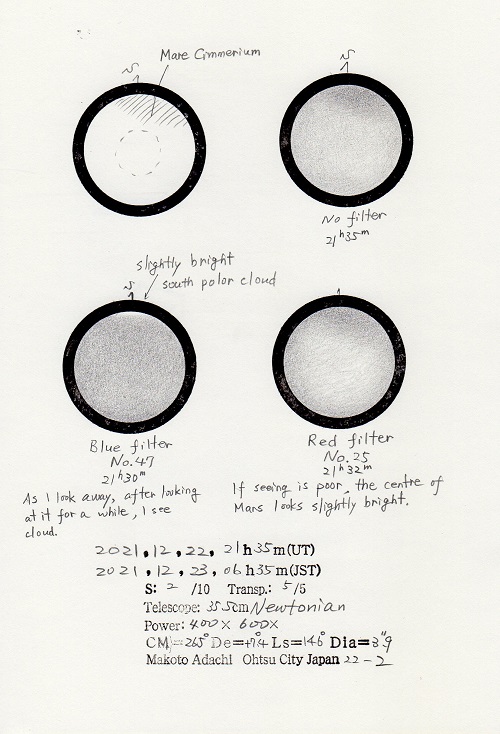 Mare Cimmerium
S
S
No filter
21h35m
slightly bright
south polor cloud
S
Blue filter
No.47
21h30m
As I look away, after looking
at it for a while, I see
cloud.
Red filter
No.25
21h32m
If seeing is poor, the centre of
Mars looks slightly bright.
2021,12,22, 21h35m(UT)
2021,12,23, 06h35m(JST)
S: 2 /10 Transp.: 5/5
Telescope: 35.5cm Newtonian
Power: 400× 600×
CM=265° De=+7°.4 Ls=146° Dia=3".9
Makoto Adachi Ohtsu City Japan 22-2